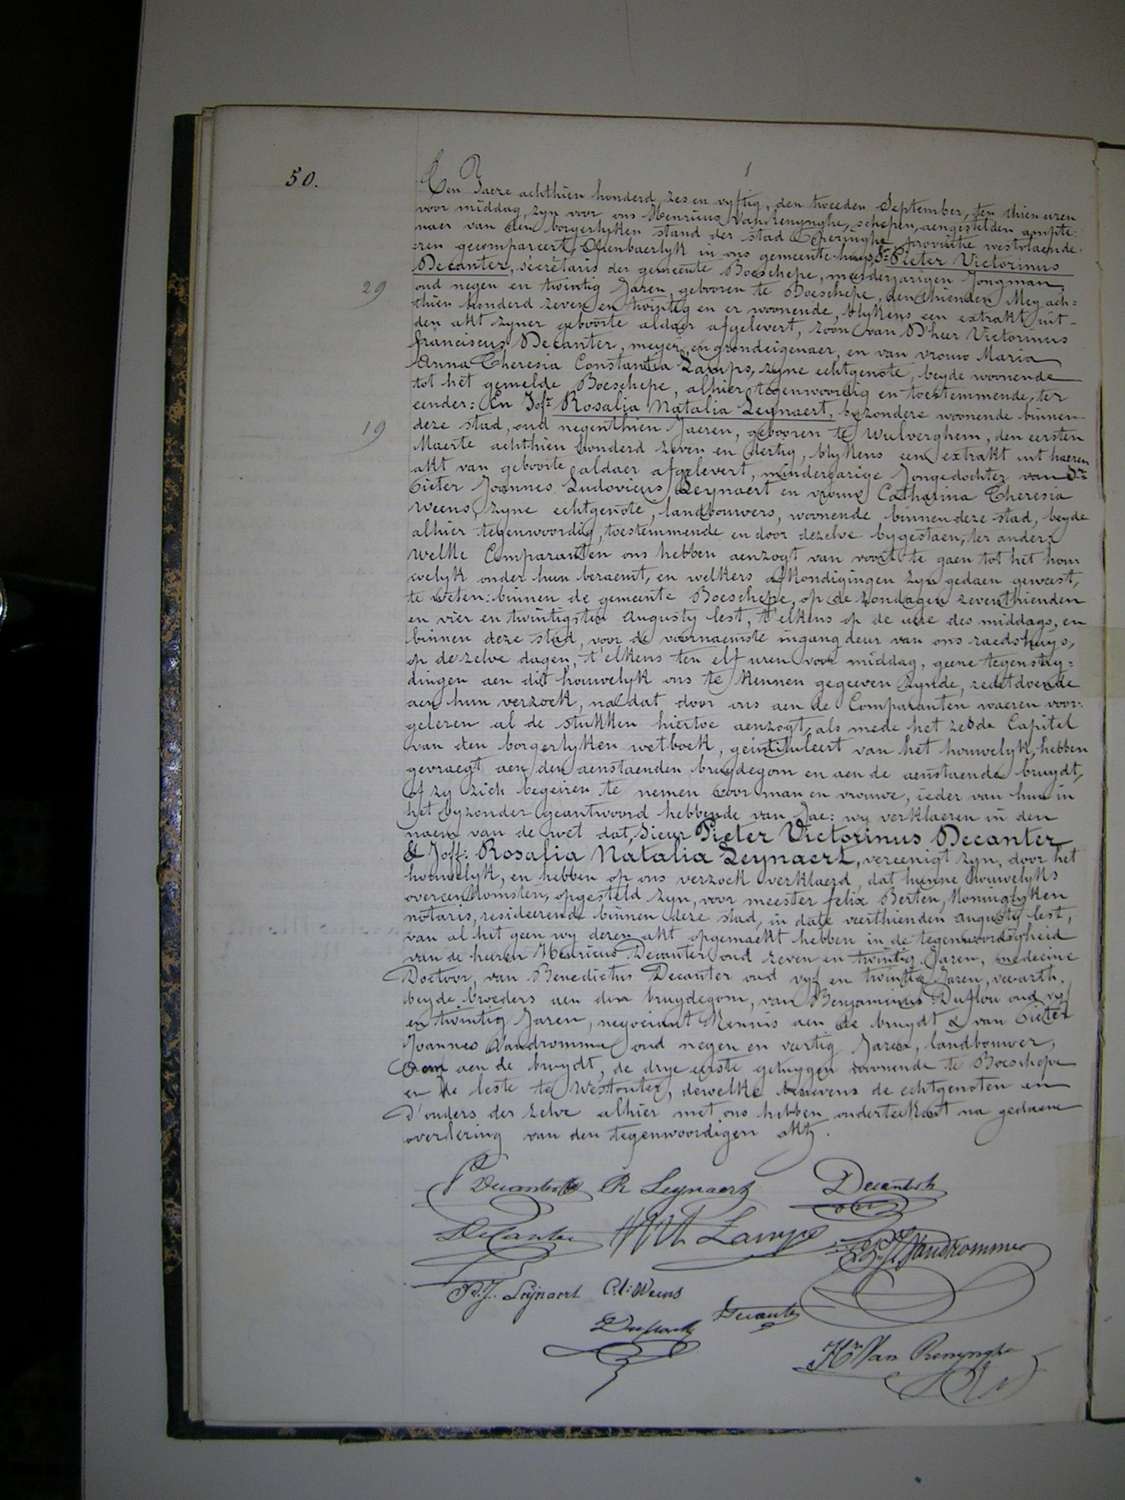 50.
Ten Jaere achthien honderd zes en vyftig, den tweeden September, ten thien uren
voor middag, zyn voor ons Henricus Van Renynghe, schepen, aengestelden ampte-
naer van den borgerlyken stand der stad Poperinghe, provintie westvlaende-
ren gecompareert, Openbaerlyk in ons gemeente huys, Sr Pieter Victorinus
Decanter, secretaris der gemeente Boeschepe, meerderjarigen Jongman
29
oud negen en twintig Jaren, gebooren te Boeschepe, den thienden Mey ach-
thien honderd zeven en twintig en er woonende, blykens een extrakt uit-
den akt zyner geboorte aldaer afgelevert, zoon van D'heer Victorinus
franciscus Decanter, meyer, en grondeigenaer, en van vrouw Maria
Anna Theresia Constantia Lamps, zyne echtgenote, beyde woonende
tot het gemelde Boeschepe, alhier tegenwoordig en toestemmende, ter
eender: En Joffe Rosalia Natalia Leynaert, byzondere woonende binnen
19
deze stad, oud negenthien Jaeren, gebooren te Wulverghem, den eersten
Maerte achthien honderd zeven en dertig, blykens een extrakt uit haeren
akt van geboorte aldaer afgelevert, minderjarige Jongedochter van Sr
Pieter Joannes Ludovicus Leynaert en vrouw Catharina Theresia
Weens, zyne echtgenote, landbouwers, woonende binnen deze stad, beyde
alhier tegenwoordig, toestemmende en door dezelve bygestaen, ter andere
Welke Comparanten ons hebben aenzogt van voort te gaen tot het hou-
welyk onder hun beraemt, en welkers afkondigingen zyn gedaen geweest,
te weten: binnen de gemeente Boeschepe, op de zondagen zeventhienden
en vier en twintigsten Augusty lest, t'elkens op de ure des middags, en
binnen deze stad, voor de voornaemste ingang deur van ons raedshuys,
op de zelve dagen, t'elkens ten elf uren voor middag, geene tegenstry-
dingen aen dit houwelyk ons te kennen gegeven zynde, zedetdoende
aen hun verzoek, naedat door ons aen de Comparanten waeren voor-
gelezen al de stukken hiertoe aenzogt, als mede het zesde Capitel
van den borgerlyken wetboek, geintituleert van het houwelyk, hebben
gevraegt aen den aenstaenden bruydegom en aen de aenstaende bruydt,
of zy zich begeiren te nemen voor man en vrouwe, ieder van hun in
het byzonder geantwoord hebbende van Jae: wy verklaeren in den
naem van de wet dat, Sieur Pieter Victorinus Decanter
& Joff: Rosalia Natalia Leynaert, vereenigt zyn, door het
houwelyk, en hebben op ons verzoek verklaerd, dat hunne houwelyks
overeenkomsten, opgesteld zyn, voor meester felix Berten, koninglyken
notaris, resideerende binnen deze stad, in date veerthienden augusty lest,
van al hit geen wy deren akt opgemaekt hebben in de tegenwoordigheid
van de heeren Henricus Decanter oud zeven en twintig Jaren, medecine
Doctoor, van Benedictus Decanter oud vyf en twintig Jaren, vee-arth,
beyde broeders aen den bruydegom, van Benjaminus Duflou oud vyf
en twintig Jaren, negociant kennis aen de bruydt & van Pieter
Joannes Vandromme oud negen en veertig Jaren, landbouwer,
Oom aen de bruydt, de drye eerste getuygen woonende te Boeschepe
en de leste te Westouter, dewelke benevens de echtgenoten en
d'ouders der zelve alhier met ons hebben onderteekent na gedaene
overlezing van den tegenwoordigen akt.
R Leynaert
DeCanter Lamps Vandromme
P.J. Leynaert C.t. Weens
Decanter
Hri Van Renynghe